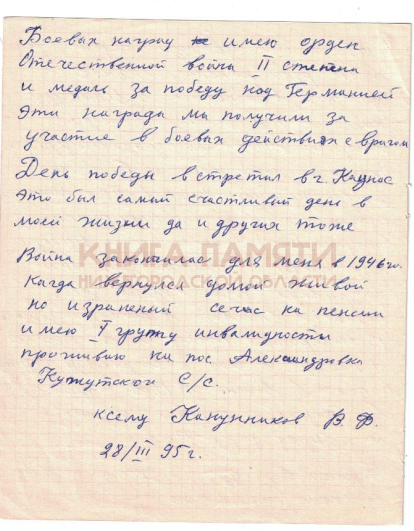 Боевых наград имею орден
Отечественной войны II степени
и медаль за победу над Германией
эти награды мы получили за
участие в боевых действиях с врагом
День победы встретил в г. Каунас
это был самый счастливый день в
моей жизни да и других тоже
Война закончилас для меня в 1946 го.
Кагда вернулся домой живой
но израненый сечас на пенсии
имею II группу инвалидности
проживаю на пос Александровка
Кужутской С/С.
к сему Канунников В. Ф.
28/III 95 г.
КНИГА ПАМЯТИ
НИЖЕГОРОДСКОЙ ОБЛАСТИ